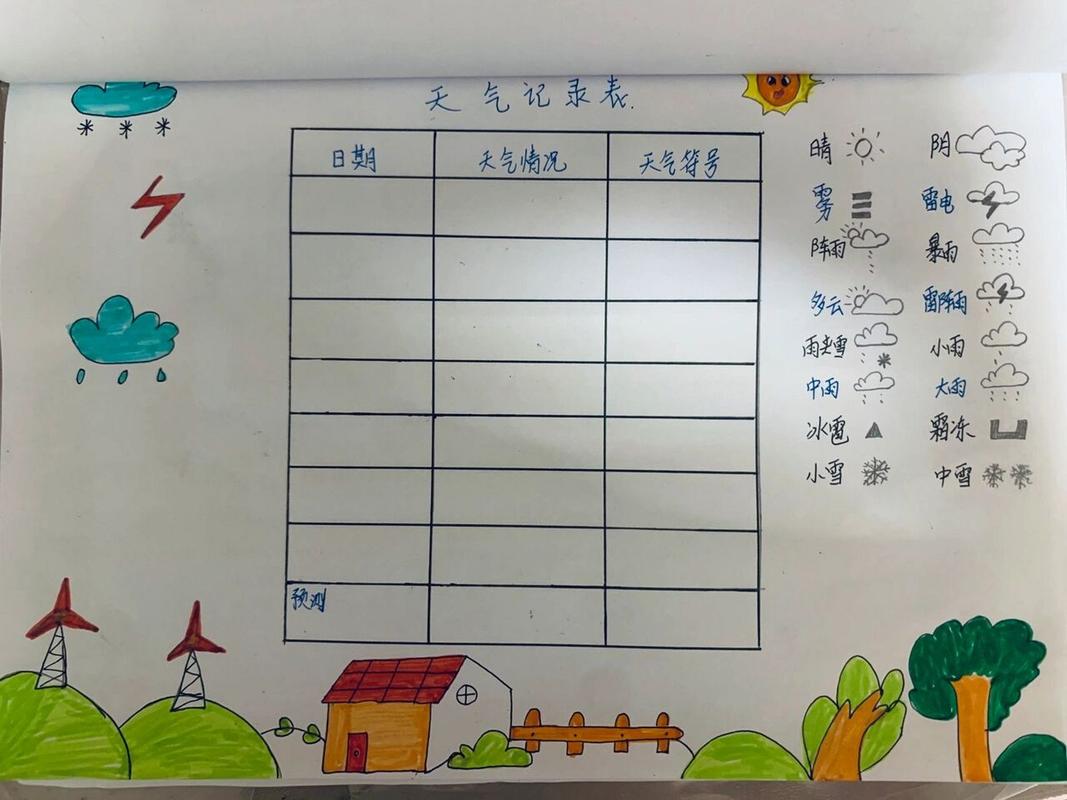 天气记录表.
日期 天气情况 天气符号
预测
晴 阴
雾 雷电
阵雨 暴雨
多云 雷阵雨
雨夹雪 小雨
中雨 大雨
冰雹 霜冻
小雪 中雪